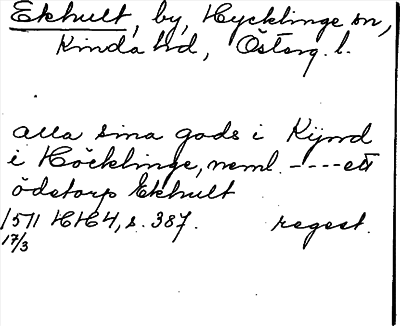 Ekhult, by, Hycklinge sn,
Kinda hd, Österg. l.
alla sina gods i Kijnd
i Höcklinge, neml. ----ett
ödetorp Ekhult
1571 HH4, s. 387. regest.
17/3